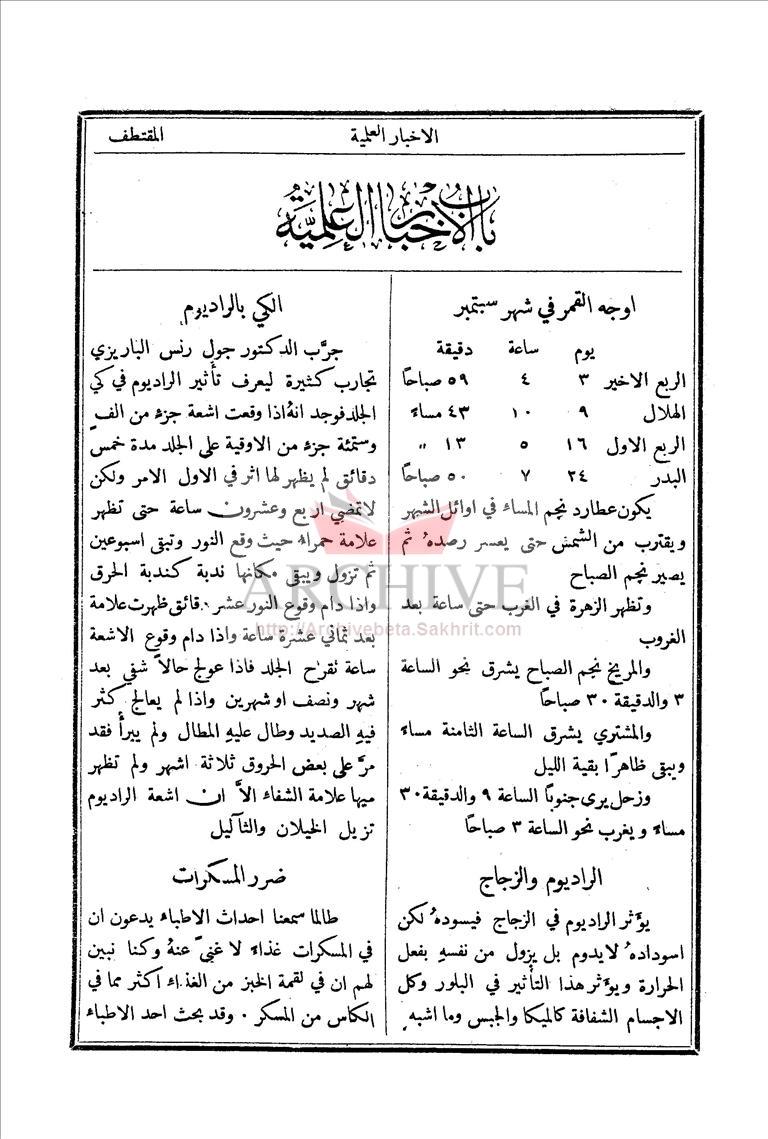 الاخبار العلمية
المقتطف
باب الاخبار العلمية
اوجه القمر في شهر سبتمبر
يوم ساعة دقيقة
الربع الاخير ٣ ٤ ٥٩ صباحًا
الهلال ٩ ١٠ ٤٣ مساءً
الربع الاول ١٦ ٥ ١٣ "
البدر ٢٤ ٧ ٥٠ صباحًا
يكون عطارد نجم المساء في اوائل الشهر
ويقترب من الشمش حتى يعسر رصدهُ ثم
يصير نجم الصباح
وتظهر الزهرة في الغرب حتى ساعة بعد
الغروب
والمريخ نجم الصباح يشرق نحو الساعة
٣ والدقيقة ٣٠ صباحًا
والمشتري يشرق الساعة الثامنة مساءً
ويبقى ظاهرًا بقية الليل
وزحل يرى جنوبًا الساعة ٩ والدقيقة ٣٠
مساءً ويغرب نحو الساعة ٣ صباحًا
الراديوم والزجاج
يؤثر الراديوم في الزجاج فيسودهُ لكن
اسوداده ُ لا يدوم بل يزول من نفسهِ بفعل
الحرارة ويؤثر هذا التأثير في البلور وكل
الاجسام الشفافة كالميكا والجبس وما اشبه
الكي بالراديوم
جرَّب الدكتور جول رنس الباريزي
تجارب كثيرة ليعرف تأثير الراديوم في كي
الجلد فوجد انهُ اذا وقعت اشعة جزءٍ من الف
وستمئة جزء من الاوقية على الجلد مدة خمس
دقائق لم يظهر لها اثر في الاول الامر ولكن
لا تمضي اربع وعشرون ساعة حتى تظهر
علامة حمراء حيث وقع النور وتبقى اسبوعين
ثم تزول ويبقى مكانها ندبة كندبة الحرق
واذا دام وقوع النور عشر دقائق ظهرت علامة
بعد ثماني عشرة ساعة واذا دام وقوع الاشعة
ساعة نقرح الجلد فاذا عولج حالاً شفي بعد
شهر ونصف او شهرين واذا لم يعالج كثر
فيهِ الصديد وطال عليهِ المطال ولم يبرأ فقد
مرَّ على بعض الحروق ثلاثة اشهر ولم تظهر
ميها علامة الشفاء الاَّ ان اشعة الراديوم
تزيل الخيلان والثآليل
ضرر المسكرات
طالما سمعنا احداث الاطباء يدعون ان
في المسكرات غذاءً لا غنىً عنهُ وكنا نبين
لهم ان في لقمة الخبز من الغذاء اكثر مما في
الكأس من المسكر ٠ وقد بحث احد الاطباء
ARCHIVE
http://Archivebeta.Sakhrit.com